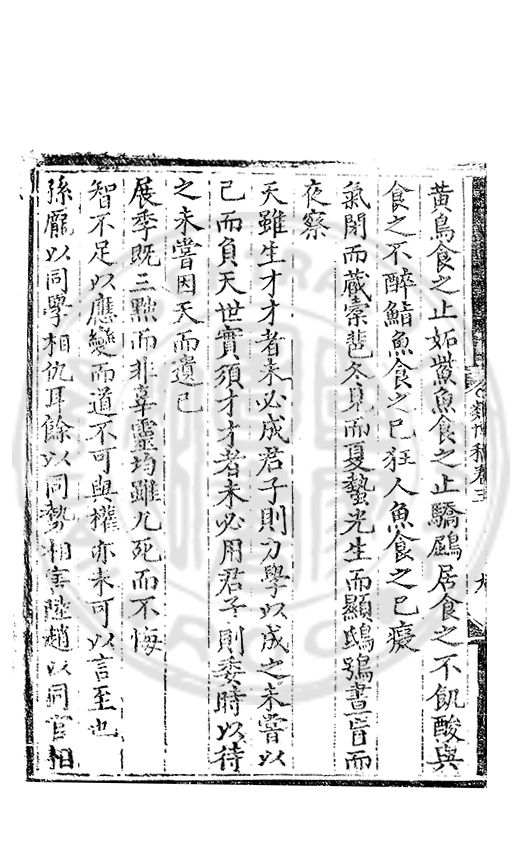 黃鳥食之止妬鮆魚食之止驕鶌居食之不飢酸與
食之不醉鮨魚食之已狂人魚食之已癡
氣閉而藏橐茞冬見而夏蟄光生而顯鴟鵂晝盲而
夜察
天雖生才才者未必成君子則力學以成之未嘗以
己而負天世實須才才者未必用君子則委時以待
之未嘗因天而遺己
展季既三黜而非辜靈均雖九死而不悔
智不足以應變而道不可與權亦未可以言至也
孫龐以同學相仇耳餘以同勢相害陸趙以同官相